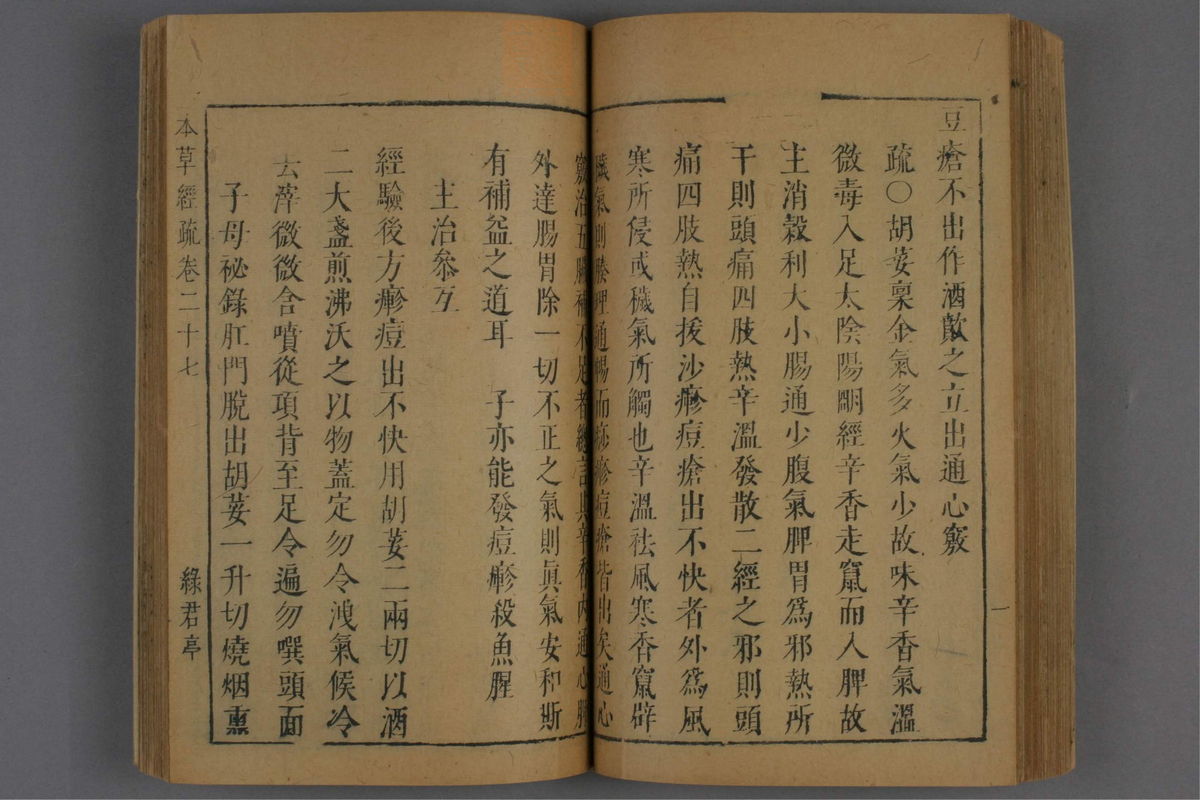 豆瘡不出作酒歕之立出通心竅
疏〇胡荽稟金氣多火氣少故味辛香氣溫
微毒入足太陰陽明經辛香走竄而入脾故
主消穀利大小腸通少腹氣脾胃爲邪熱所
干則頭痛四肢熱辛溫發散二經之邪則頭
痛四肢熱自拔沙疹痘瘡出不快者外爲風
寒所侵或穢氣所觸也辛溫祛風寒香竄辟
穢氣則腠理通暢而痧疹痘瘡皆出矣通心
竅治五臟補不足者總言其辛香內通心脾
外達腸胃除一切不正之氣則眞氣安和斯
有補益之道耳 子亦能發痘疹殺魚腥
主治參互
經驗後方疹痘出不快用胡荽二兩切以酒
二大盞煎沸沃之以物蓋定勿令洩氣候冷
去滓微微含噴從項背至足令遍勿噀頭面
子母祕錄肛門脫出胡荽一升切燒烟熏
本草經疏卷二十七 綠君亭